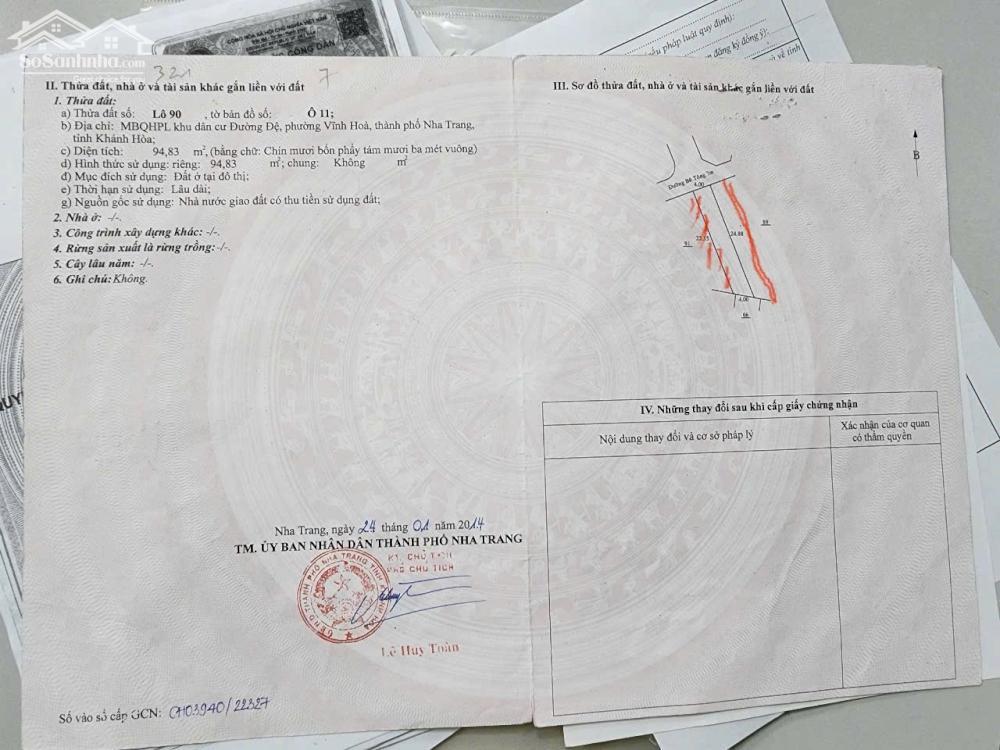 SoSanhnha.com
Trust & Believe
CỘNG HÒA XÃ HỘI CHỦ NGHĨA VIỆT NAM
CÔNG DÂN
pháp luật quy định):
đăng ký đồng ý):
321
7
II. Thửa đất, nhà ở và tài sản khác gắn liền với đất
1. Thửa đất:
a) Thửa đất số: Lô 90 , tờ bản đồ số: Ô 11;
b) Địa chỉ: MBQHPL khu dân cư Đường Đệ, phường Vĩnh Hoà, thành phố Nha Trang,
tỉnh Khánh Hòa;
c) Diện tích: 94,83 m², (bằng chữ: Chín mươi bốn phẩy tám mươi ba mét vuông)
d) Hình thức sử dụng: riêng: 94,83 m²; chung: Không m²
đ) Mục đích sử dụng: Đất ở tại đô thị;
e) Thời hạn sử dụng: Lâu dài;
g) Nguồn gốc sử dụng: Nhà nước giao đất có thu tiền sử dụng đất;
2. Nhà ở: -/-.
3. Công trình xây dựng khác: -/-.
4. Rừng sản xuất là rừng trồng: -/-.
5. Cây lâu năm: -/-.
6. Ghi chú: Không.
Nha Trang, ngày 24 tháng 01 năm 2014
TM. ỦY BAN NHÂN DÂN THÀNH PHỐ NHA TRANG
KT. CHỦ TỊCH
PHÓ CHỦ TỊCH
UBND THÀNH PHỐ NHA TRANG TỈNH KHÁNH HÒA
Lê Huy Toàn
Số vào sổ cấp GCN: CH03940/22327
III. Sơ đồ thửa đất, nhà ở và tài sản khác gắn liền với đất
B
Đường Bê Tông 7m
4.00
89
91
24.88
4.00
66
IV. Những thay đổi sau khi cấp giấy chứng nhận
Nội dung thay đổi và cơ sở pháp lý
Xác nhận của cơ quan
có thẩm quyền